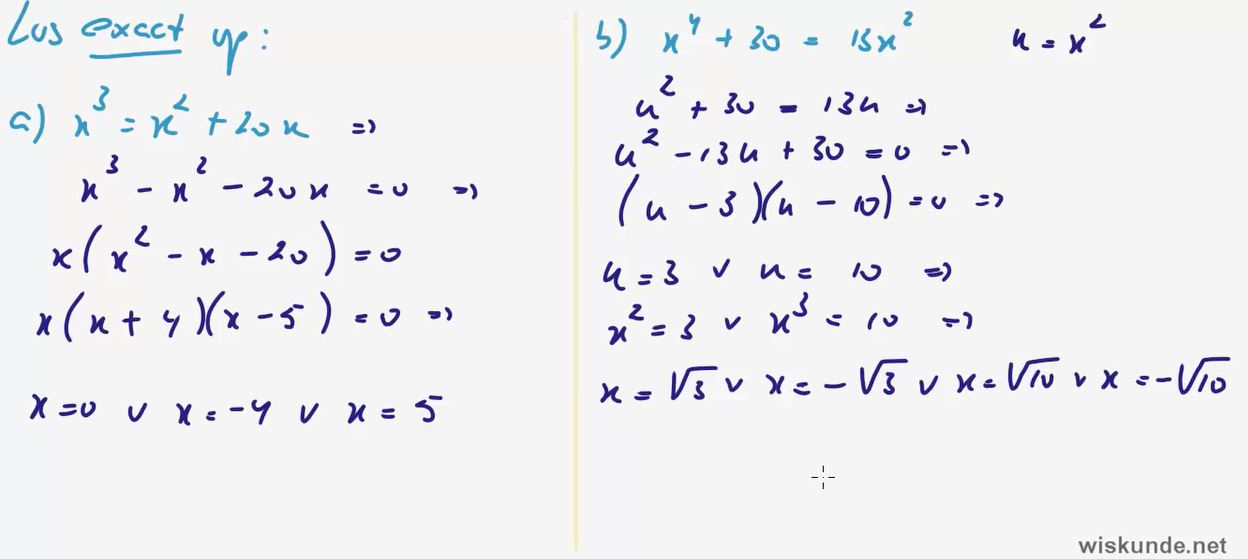 Los exact op:
a) x³ = x² + 20x ⇒
x³ - x² - 20x = 0 ⇒
x(x² - x - 20) = 0
x(x + 4)(x - 5) = 0 ⇒
x = 0 ∨ x = -4 ∨ x = 5
b) x⁴ + 30 = 13x² u = x²
u² + 30 = 13u ⇒
u² - 13u + 30 = 0 ⇒
(u - 3)(u - 10) = 0 ⇒
u = 3 ∨ u = 10 ⇒
x² = 3 ∨ x³ = 10 ⇒
x = √3 ∨ x = -√3 ∨ x = √10 ∨ x = -√10
wiskunde.net